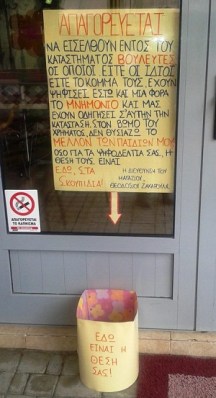 ΑΠΑΓΟΡΕΥΕΤΑΙ
ΝΑ ΕΙΣΕΛΘΟΥΝ ΕΝΤΟΣ ΤΟΥ
ΚΑΤΑΣΤΗΜΑΤΟΣ ΒΟΥΛΕΥΤΕΣ
ΟΙ ΟΠΟΙΟΙ ΕΙΤΕ ΟΙ ΙΔΙΟΙ
ΕΙΤΕ ΤΟ ΚΟΜΜΑ ΤΟΥΣ, ΕΧΟΥΝ
ΨΗΦΙΣΕΙ, ΕΣΤΩ ΚΑΙ ΜΙΑ ΦΟΡΑ
ΤΟ ΜΝΗΜΟΝΙΟ ΚΑΙ ΜΑΣ
ΕΧΟΥΝ ΟΔΗΓΗΣΕΙ Σ'ΑΥΤΗΝ ΤΗΝ
ΚΑΤΑΣΤΑΣΗ. ΣΤΟΝ ΒΩΜΟ ΤΟΥ
ΧΡΗΜΑΤΟΣ, ΔΕΝ ΘΥΣΙΑΖΩ ΤΟ
ΜΕΛΛΟΝ ΤΩΝ ΠΑΙΔΙΩΝ ΜΟΥ
ΟΣΟ ΓΙΑ ΤΑ ΨΗΦΟΔΕΛΤΙΑ ΣΑΣ, Η
ΘΕΣΗ ΤΟΥΣ ΕΙΝΑΙ
ΕΔΩ, ΣΤΑ
ΣΚΟΥΠΙΔΙΑ!
Η ΔΙΕΥΘΥΝΣΗ ΤΟΥ
ΜΑΓΑΖΙΟΥ,
ΘΕΟΔΟΣΙΟΣ
ΑΠΑΓΟΡΕΥΕΤΑΙ
ΤΟ ΚΑΠΝΙΣΜΑ
ΕΔΩ
ΕΙΝΑΙ Η
ΘΕΣΗ
ΣΑΣ!